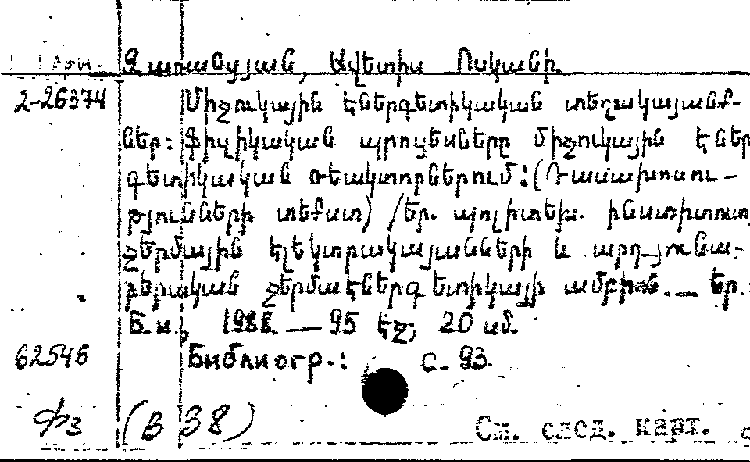 Ավետիս Ոսկանի
2-26374 Միջուկային էներգետիկական տեղակայանք-
ներ: Ֆիզիկական պրոցեսները միջուկային էներ
գետիկական ռեակտորներում:(Դասախոսու-
թյունների տեքստ) /Եր. պոլիտեխ. ինստիտուտ
ջերմային էլեկտրակայանների և արդյունա-
բերական ջերմաէներգետիկայի ամբիոն.— Եր.:
Б.и., — 95 էջ; 20 սմ.
62546 Библиогр.: с. 93
Фз (В 38) См. след. карт.